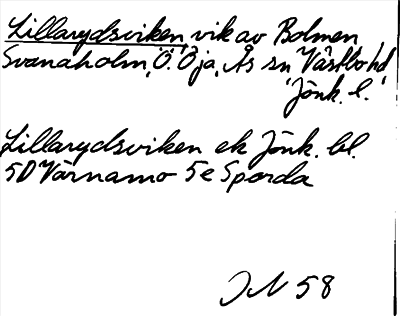 Lillarydsviken vik av Bolmen
Svanaholm, Ö. Öja, Ås sn Västbo hd
Jönk. l.
Lillarydsviken ek Jönk. bl.
5D Värnamo 5e Sporda
JN 58